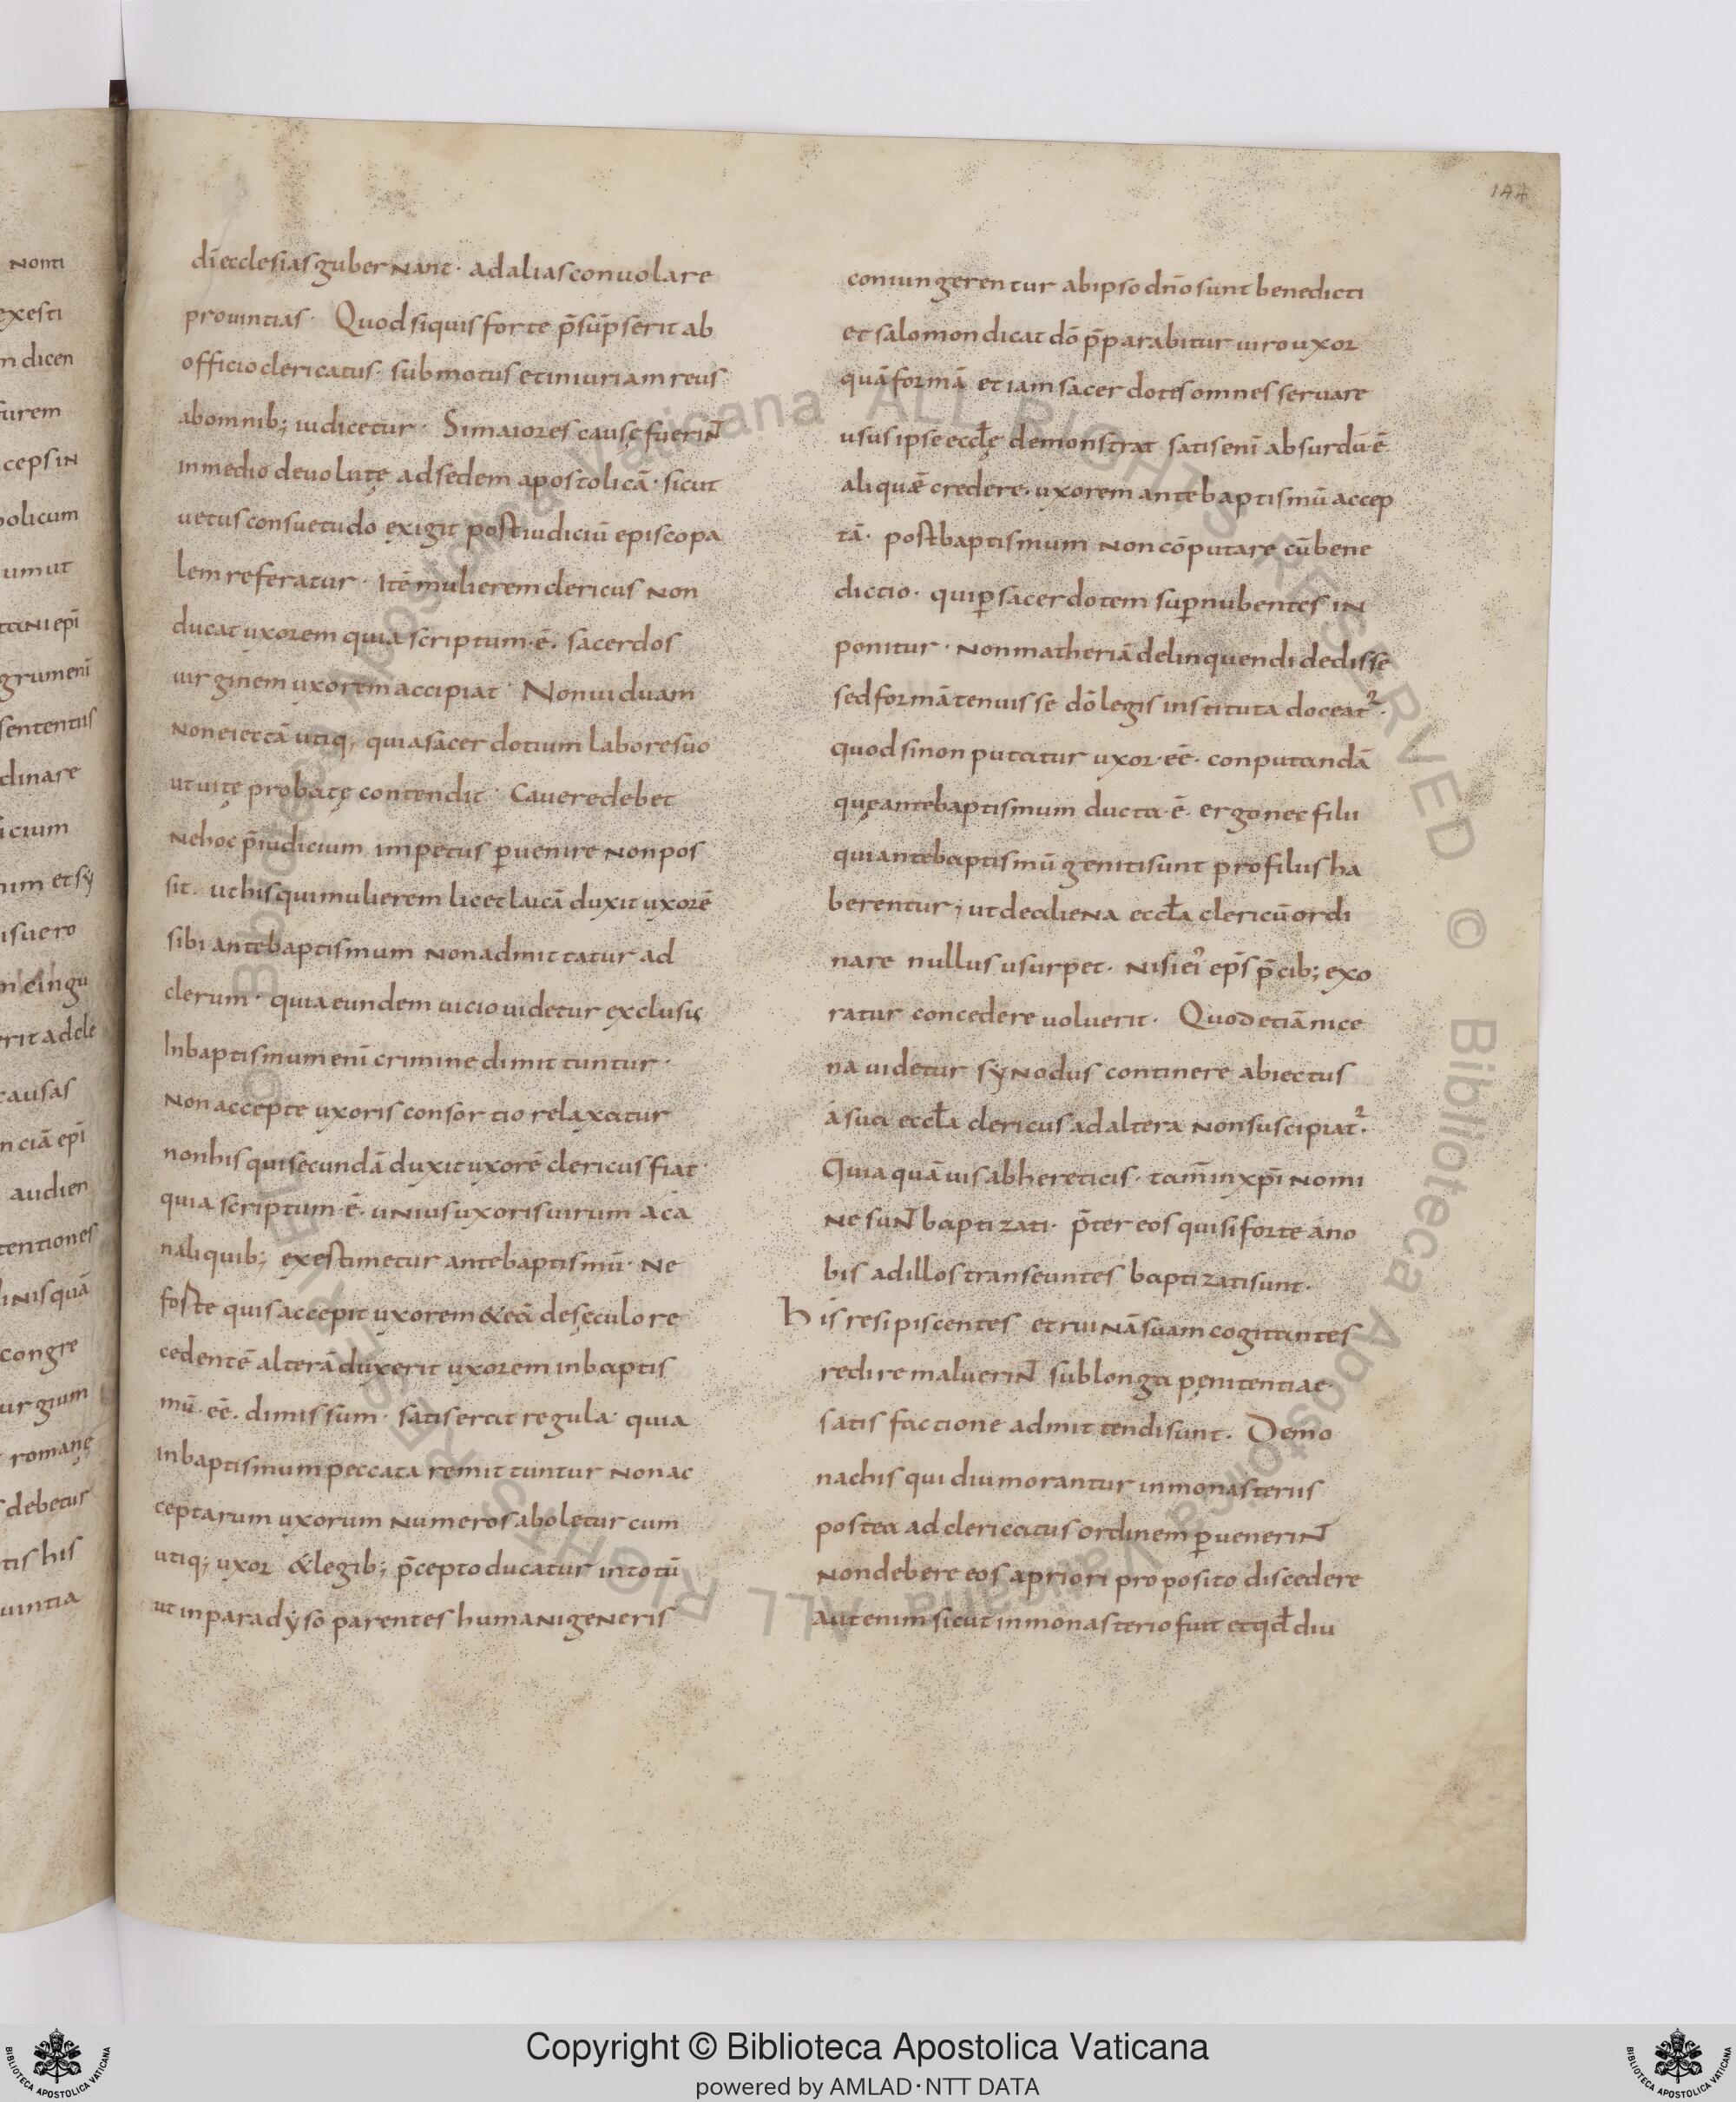 di ecclesias gubernant · ad alias conuolare
prouintias · Quod si quis forte p̄sūpserit ab
officio clericatus · submotus et iniuriam reus
ab omnib; iudicetur · Si maiores causę fuerint̄
in medio deuolutę ad sedem apostolicā · sicut
uetus consuetudo exigit post iudiciū episcopa
lem referatur · Itē mulierem clericus non
ducat uxorem quia scriptum · ē · sacerdos
uirginem uxorem accipiat · Non uiduam
non eiectā utiq; quia sacerdotium labore suo
ut uitę probatę contendit · Cauere debet
ne hoc p̄iudicium impetus ꝑuenire non pos
sit · ut his qui mulierem licet laicā duxit uxorē
sibi ante baptismum non admittatur ad
clerum · quia eundem uicio uidetur exclusis
In baptismum enī crimine dimittuntur ·
non accepte uxoris consortio relaxatur
non his qui secundā duxit uxorē clericus fiat
quia scriptum · ē · unius uxoris uirum ac á
n aliquib; exestimetur ante baptismū · Ne
foste quis accepit uxorem & eā de sęculo re
cedentē alterā duxerit uxorem in baptis
mū · eē · dimissum · satis errat regula · quia
in baptismum peccata remittuntur non ac
ceptarum uxorum numeros aboletur cum
utiq; uxor & legib; p̄cepto ducatur in totū
ut in paradyso parentes humani generis
coniungerentur ab ipso dn̄o sunt benedicti
et salomon dicat dō p̄parabitur uiro uxor
quā formā et iam sacerdotes omnes seruare
usus ipse eccłę demonstrat satis enī absurdū · ē
aliquē credere · uxorem ante baptismū accep
tā · post baptismum non cōputare cū bene
dictio · qui ꝑ sacerdotem suꝑ nubentes in
ponitur · non matheriā delinquendi dedisse
sed formā tenuisse dō legis instituta doceat² ·
quod si non putatur uxor · eē · conputandā
quę ante baptismum ducta · ē · ergo nec filii
qui ante baptismū geniti sunt pro filiis ha
berentur ; ut de adiena eccła clericū ordi
nare nullus usurpet · nisi ei' ep̄s p̄cib; exo
ratur concedere uoluerit · Quod etiā nice
na uidetur synodus continere abiectus
á sua eccła clericus ad altera non suscipiat² ·
Quia quāuis ab hereticis · tam̄ in xp̄i nomi
ne sunt̄ baptizati · p̄ter eos qui si forte á no
bis ad illos transeuntes baptizati sunt ·
His resipiscentes et ruinā suam cogitantes
redire maluerint̄ sub longa pęnitentiae
satisfactione admittendi sunt · De mo
nachis qui diu morantur in monasteriis
postea ad clericatus ordinem ꝑuenerint̄
non debere eos a priori proposito discedere
aut enim sicut in monasterio fuit et qđ diu